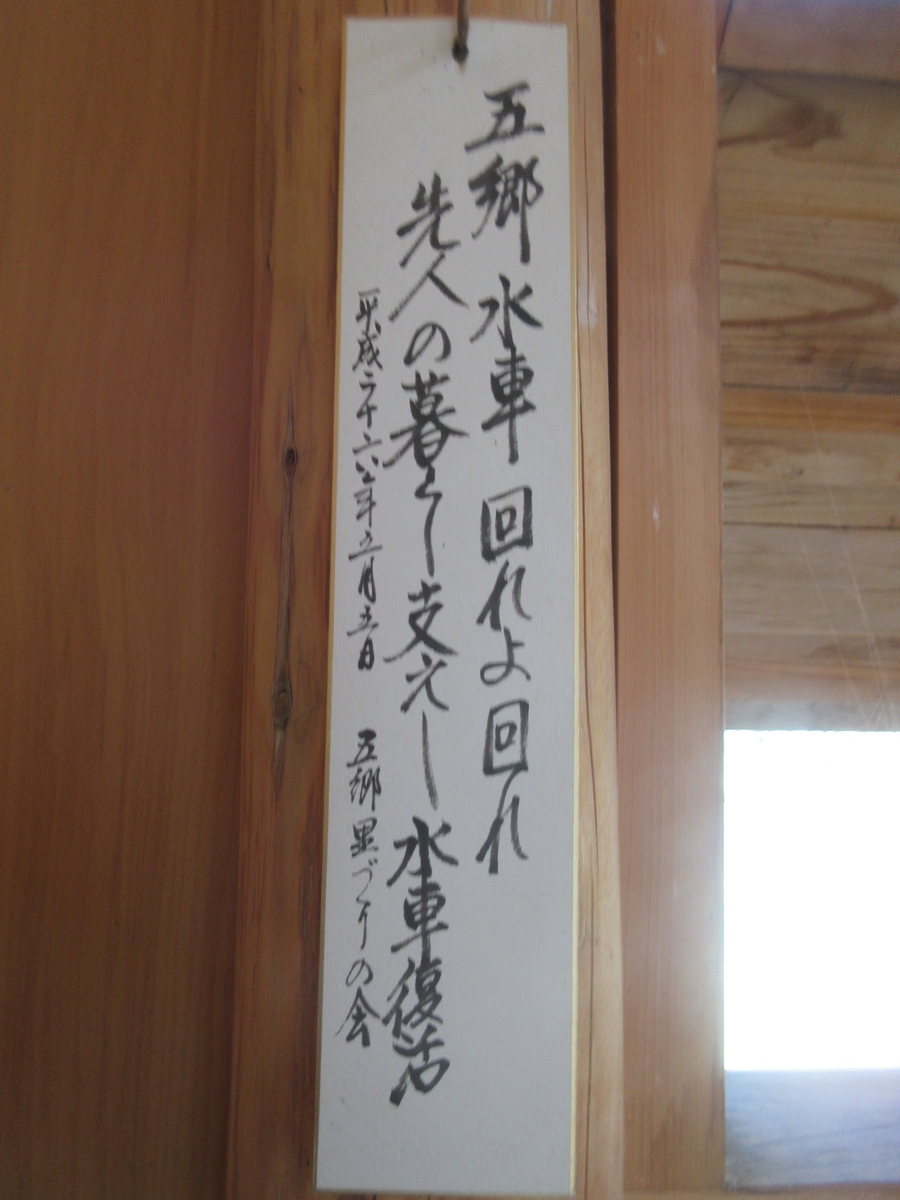 五郷水車 回れよ回れ
先人の暮らし支えし 水車復活
平成二十六年五月五日 五郷里づくりの会